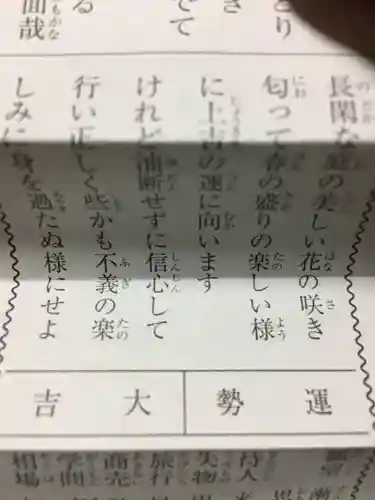 とり
き
でて
る
面哉
長閑な庭の美しい花の咲き
匂って春の盛りの楽しい様
に上吉の運に向います
けれど油断せずに信心して
行い正しく些かも不義の楽
しみに身を過たぬ様にせよ
運勢
大吉
待人
失物
旅行
商売
学問
相場